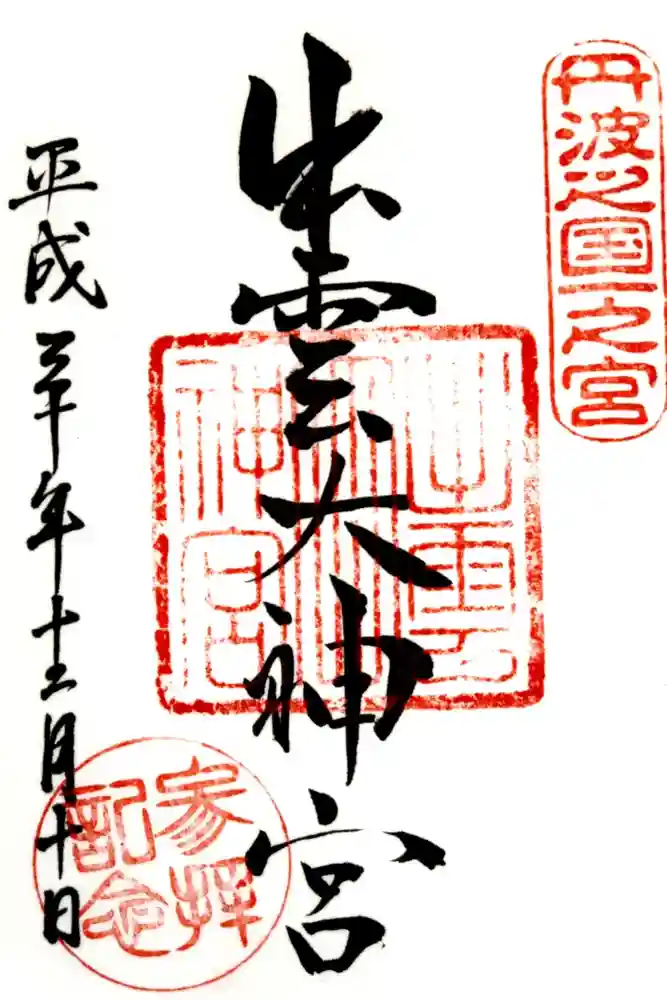 丹波之国一之宮
出雲大神宮
出雲大神宮
平成三十年十二月十日
参拝
記念